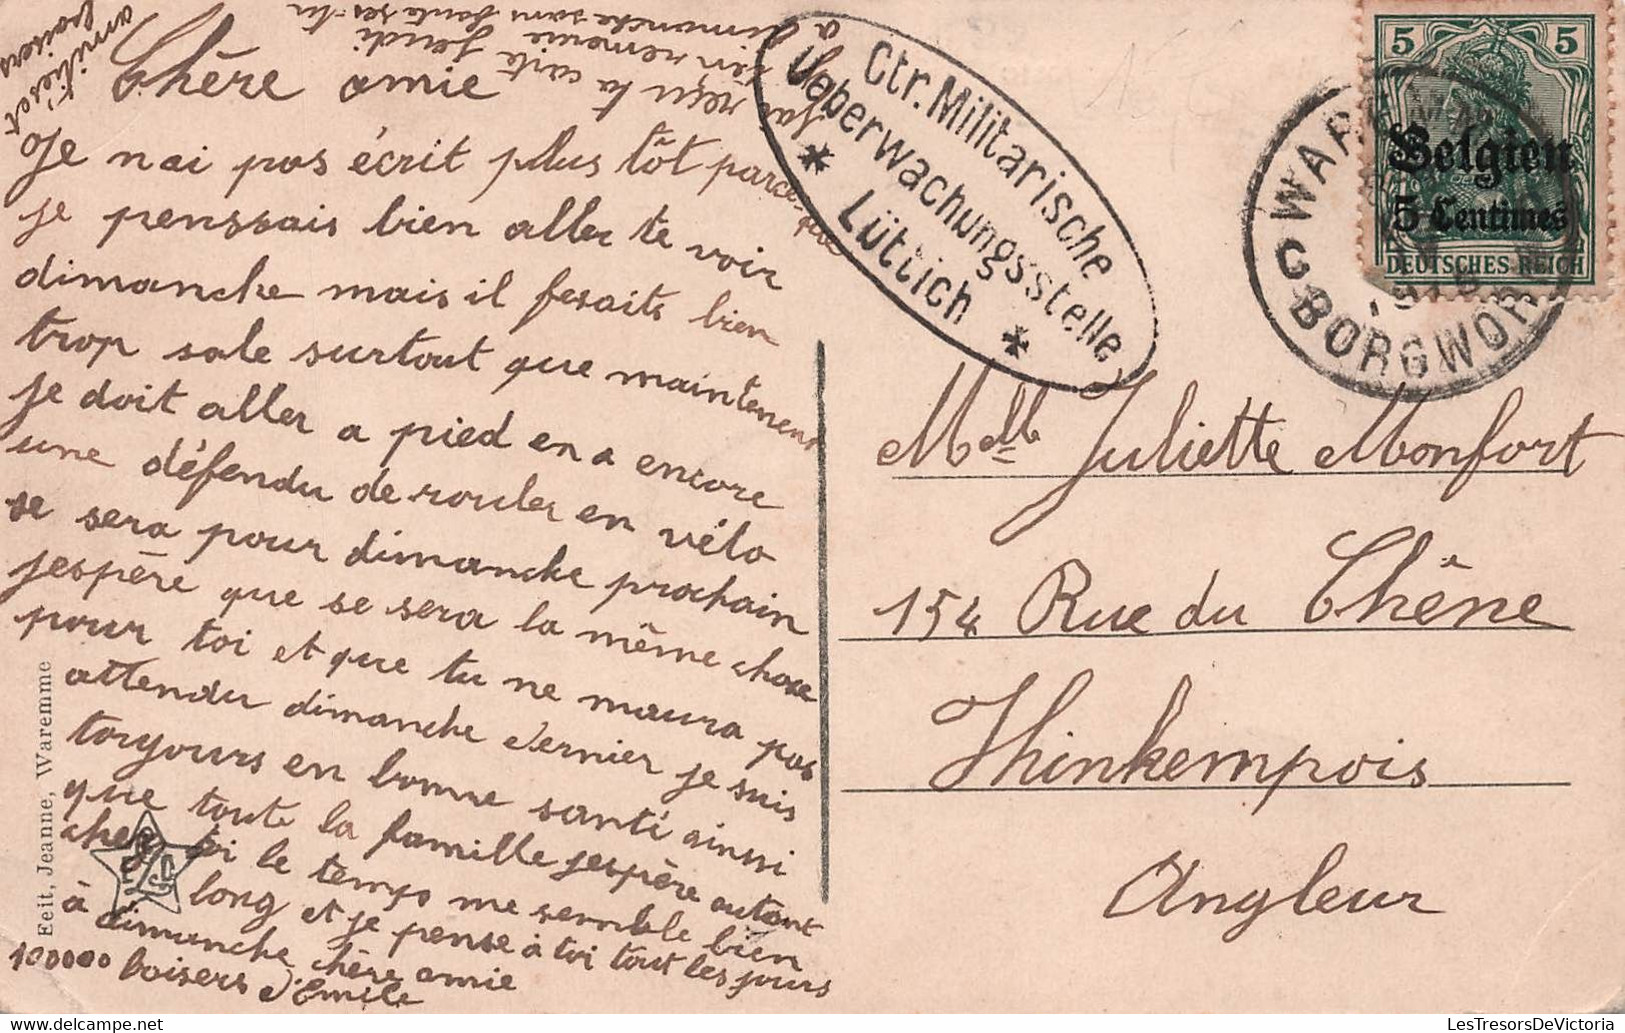 Chère amie
Je n'ai pas écrit plus tôt parce que
je penssais bien aller te voir
dimanche mais il fesaits bien
trop sale surtout que maintenent
je doit aller a pied en a encore
une défendu de rouler en vélo
se sera pour dimanche prochain
jespère que se sera la même chose
pour toi et que tu ne maura pas
attendu dimanche dernier je suis
toujours en bonne santé ainsi
que toute la famille jespère autant
chez toi le temps me semble bien
long et je pense à toi tout les jours
à dimanche chère amie
100000 baisers d'Emile
jai reçu ta carte jeudi
rien
a dimanche sans faute
amitiés et
baisers
Ctr. Militärische
Ueberwachungsstelle
* Lüttich *
5 5
Belgien
5 Centimes
DEUTSCHES REICH
WAR
BORGWOR
C
Melle Juliette Monfort
154 Rue du Chêne
Thinkempois
Angleur
Eeit, Jeanne, Waremme
www.LesTresorsDeVictoria.com